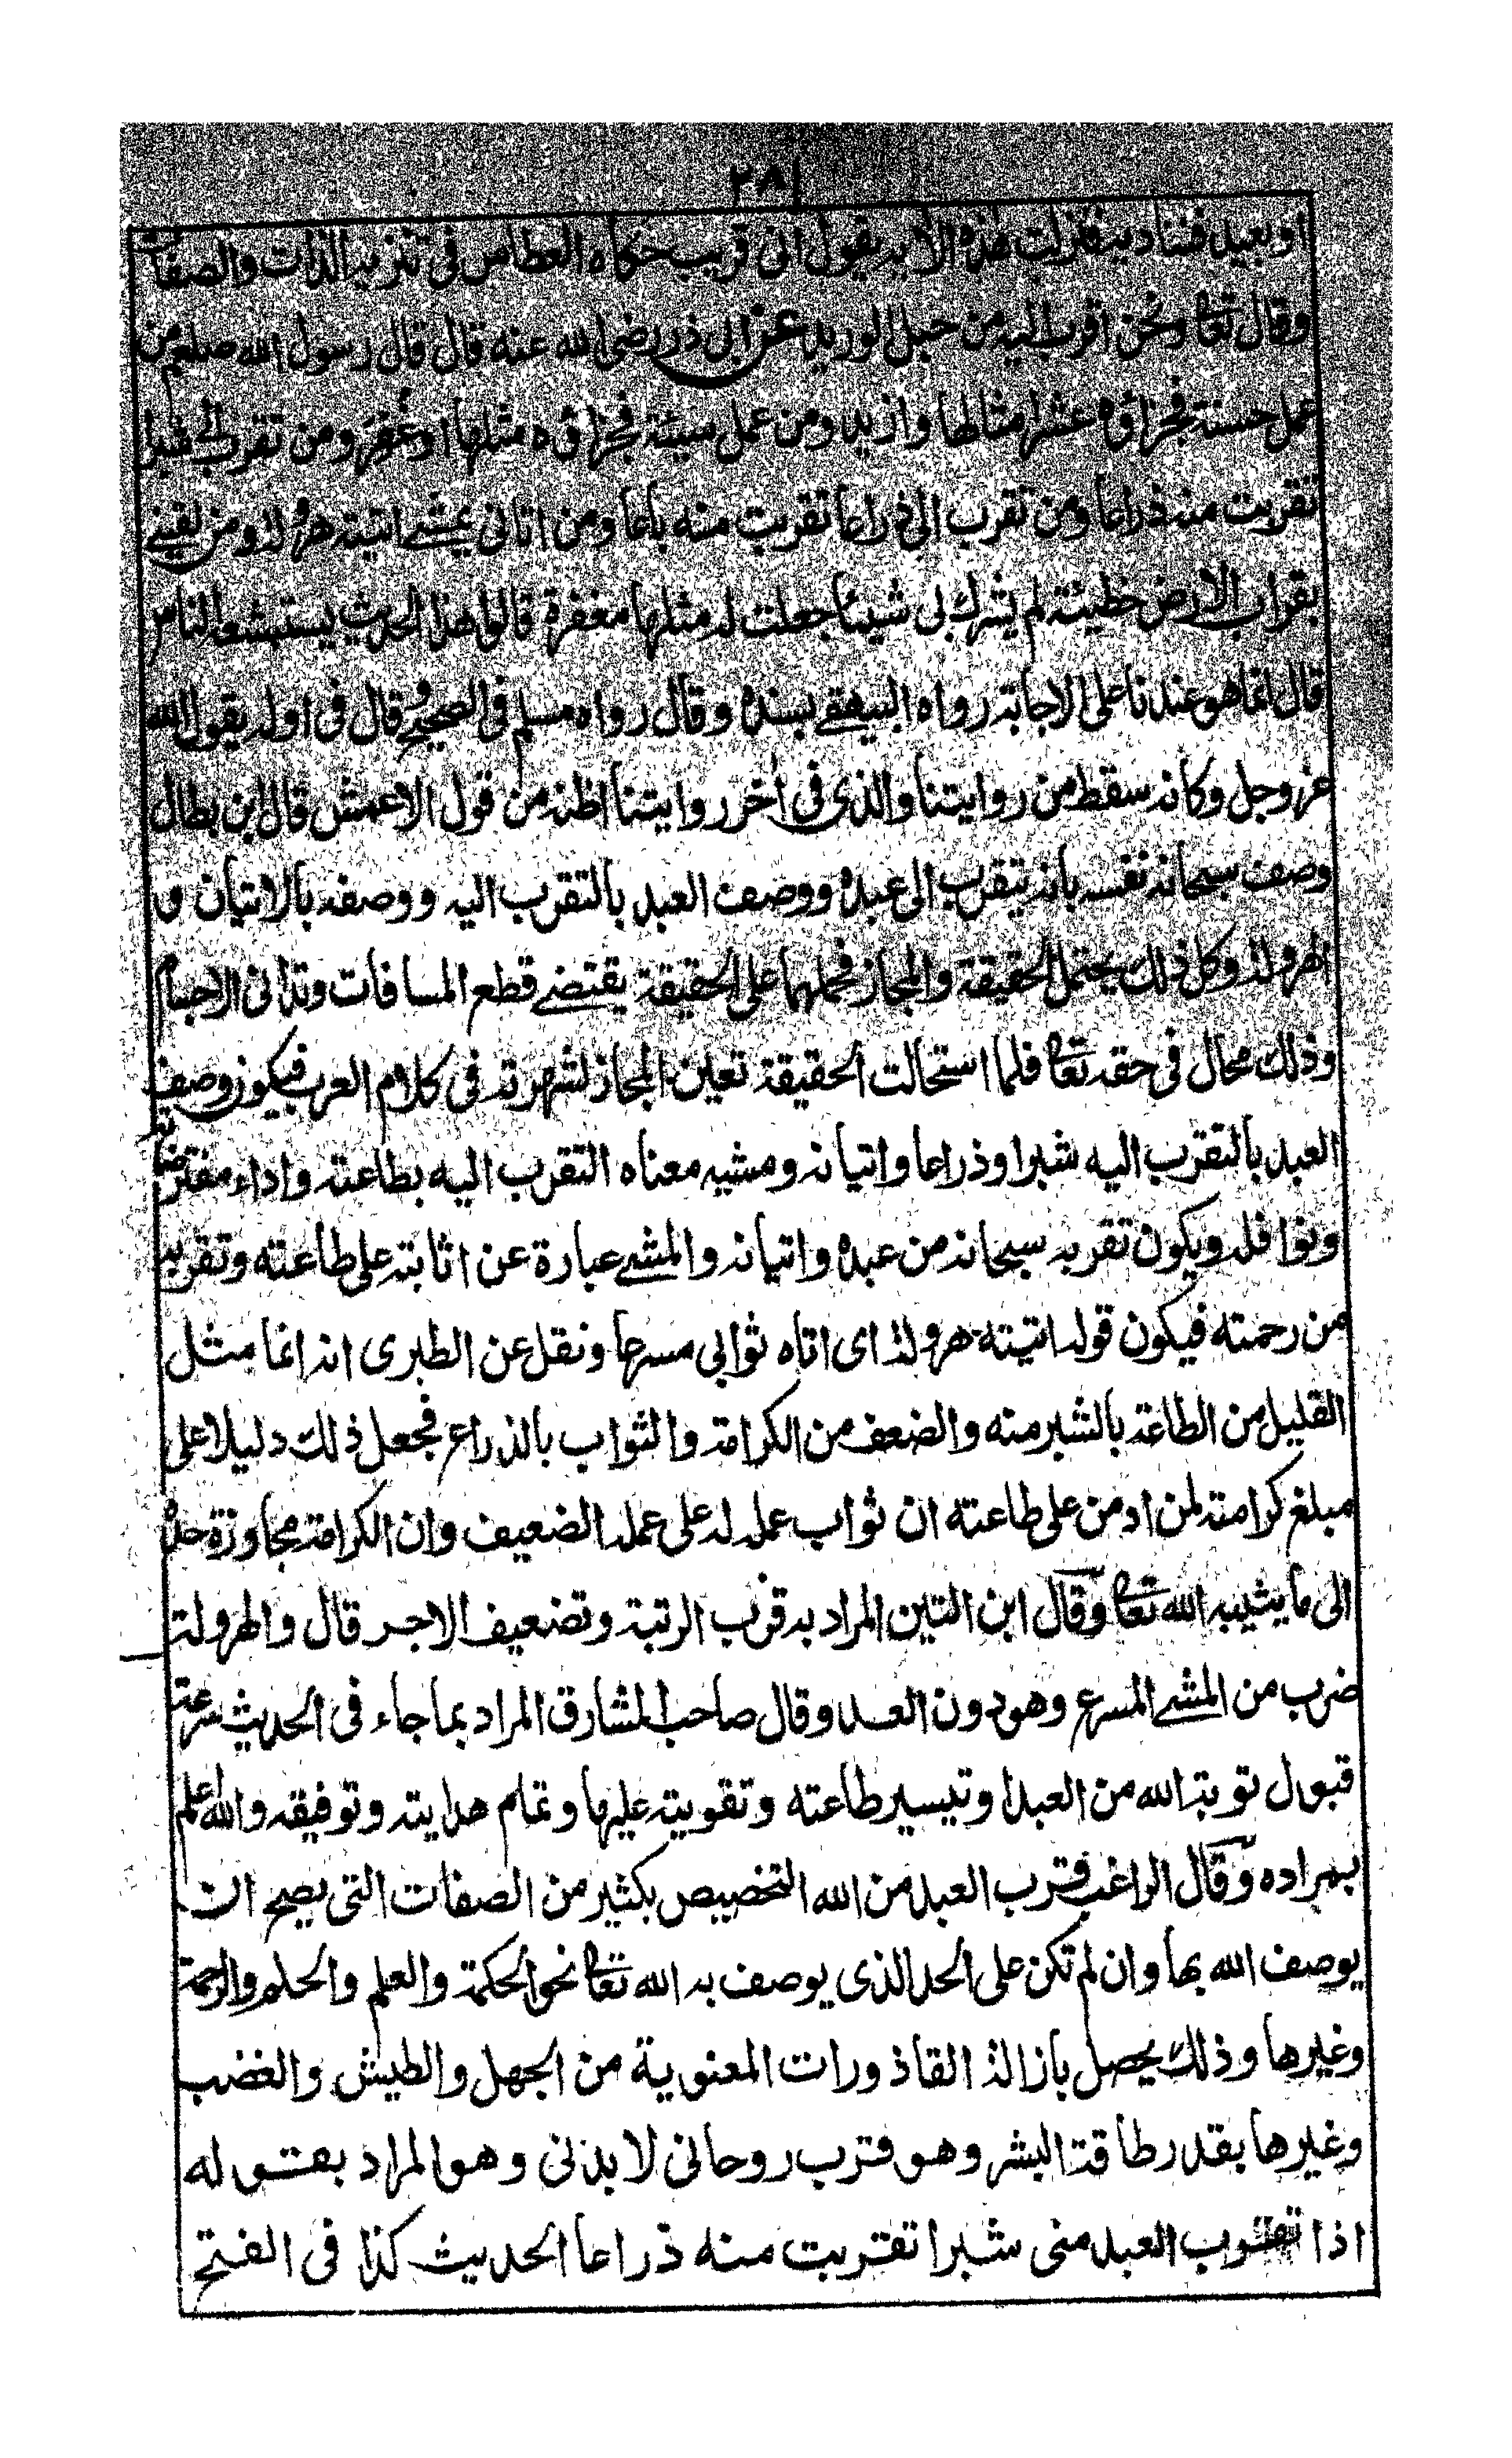 ٢٨١
او بعيد فتناديه فنزلت هذه الاية يقول انى قريب حكاه العطاس فى تنزيه الذات والصفات
وقال تعا ونحن اقرب اليه من حبل الوريد عن ابى ذر رضى الله عنه قال قال رسول الله صلعم من
عمل حسنة فجزاؤه عشر امثالها وازيد ومن عمل سيئة فجزاؤه مثلها او غفر ومن تقرب الى شبرا
تقربت منه ذراعا ومن تقرب الى ذراعا تقربت منه باعا ومن اتانى يمشى اتيته هرولة ومن لقينى
بقراب الارض خطيئة لم يشرك بى شيئا جعلت له مثلها مغفرة قالوا هذا الحديث يستبشع الناس
قال انما هو عندنا على الاجابة رواه البيهقى بسنده وقال رواه مسلم فى الصحيح وقال فى اوله يقول الله
عز وجل وكانه سقط من روايتنا والذى فى أخر روايتنا اظنه من قول الاعمش قال ابن بطال
وصف سبحانه نفسه بانه يتقرب الى عبده ووصف العبد بالتقرب اليه ووصفه بالاتيان و
الهرولة وكل ذلك يحتمل الحقيقة والمجاز فحملها على الحقيقة يقتضى قطع المسافات وتدانى الاجسام
وذلك محال فى حقه تعا فلما استحالت الحقيقة تعين المجاز لشهرته فى كلام العرب فيكون وصف
العبد بالتقرب اليه شبرا وذراعا واتيانه ومشيه معناه التقرب اليه بطاعته واداء مفترضاته
ونوافله ويكون تقربه سبحانه من عبده واتيانه والمشى عبارة عن اثابته على طاعته وتقربه
من رحمته فيكون قوله اتيته هرولة اى اتاه ثوابى مسرعا ونقل عن الطبرى انه انما مثل
القليل من الطاعة بالشبر منه والضعف من الكرامة والثواب بالذراع فجعل ذلك دليلا على
مبلغ كرامته لمن ادمن على طاعته ان ثواب عمله له على عمله الضعيف وان الكرامة مجاوزة حده
الى ما يثيبه الله تعا وقال ابن التين المراد به قرب الرتبة وتضعيف الاجر قال والهرولة
ضرب من المشى المسرع وهو دون العدو وقال صاحب المشارق المراد بما جاء فى الحديث سرعة
قبول توبة الله من العبد او تيسير طاعته وتقويته عليها وتمام هدايته وتوفيقه والله اعلم
بمراده وقال الراغب قرب العبد من الله التخصيص بكثير من الصفات التى يصح ان
يوصف الله بها وان لم تكن على الحد الذى يوصف به الله تعا نحو الحكمة والعلم والحلم والرحمة
وغيرها وذلك يحصل بازالة القاذورات المعنوية من الجهل والطيش والغضب
وغيرها بقدر طاقة البشر وهو قرب روحانى لا بدنى وهو المراد بقوله
اذا تقرب العبد منى شبرا تقربت منه ذراعا الحديث كذا فى الفتح